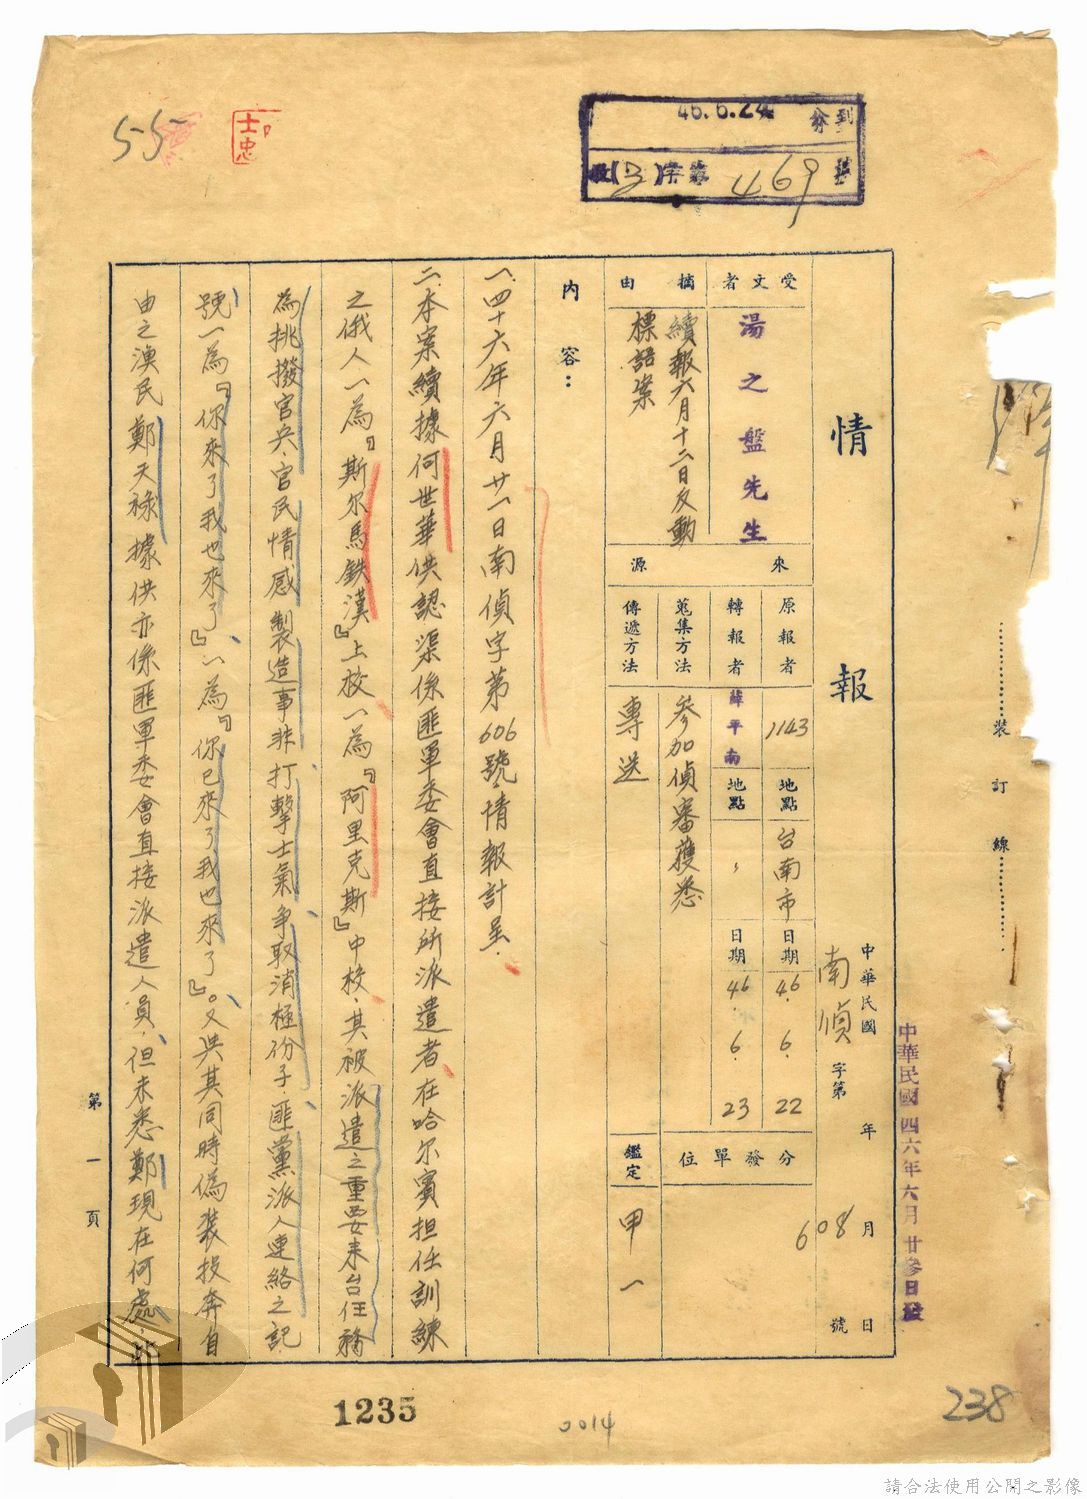 55
士忠
46.6.24
收(3)字第469號
情報
中華民國 年 月 日
南偵字第608號
中華民國四六年六月廿參日發
裝訂線
受文者
湯之盤先生
摘由
續報六月十二日反動
標語案
來源
原報者 1143 地點 台南市 日期 46.6.22
轉報者 薛平南 地點 日期 46.6.23
蒐集方法 參加偵審獲悉
傳遞方法 專送
分發單位
鑑定 甲一
內容:
一、四十六年六月廿一日南偵字第606號情報計呈.
二、本案續據何世華供認渠係匪軍委會直接所派遣者在哈尔賓担任訓練
之俄人一為『斯尔馬鉄漢』上校一為『阿里克斯』中校、其被派遣之重要來台任務
為挑撥官兵、官民情感製造事非打擊士氣爭取消極份子、匪黨派人連絡之記
號一為『你來了我也來了』、一為『你已來了我也來了』。又供其同時偽裝投奔自
由之漁民鄭天祿據供亦係匪軍委會直接派遣人員、但未悉鄭現在何處、此
第一頁
1235
0014
238
請合法使用公開之影像